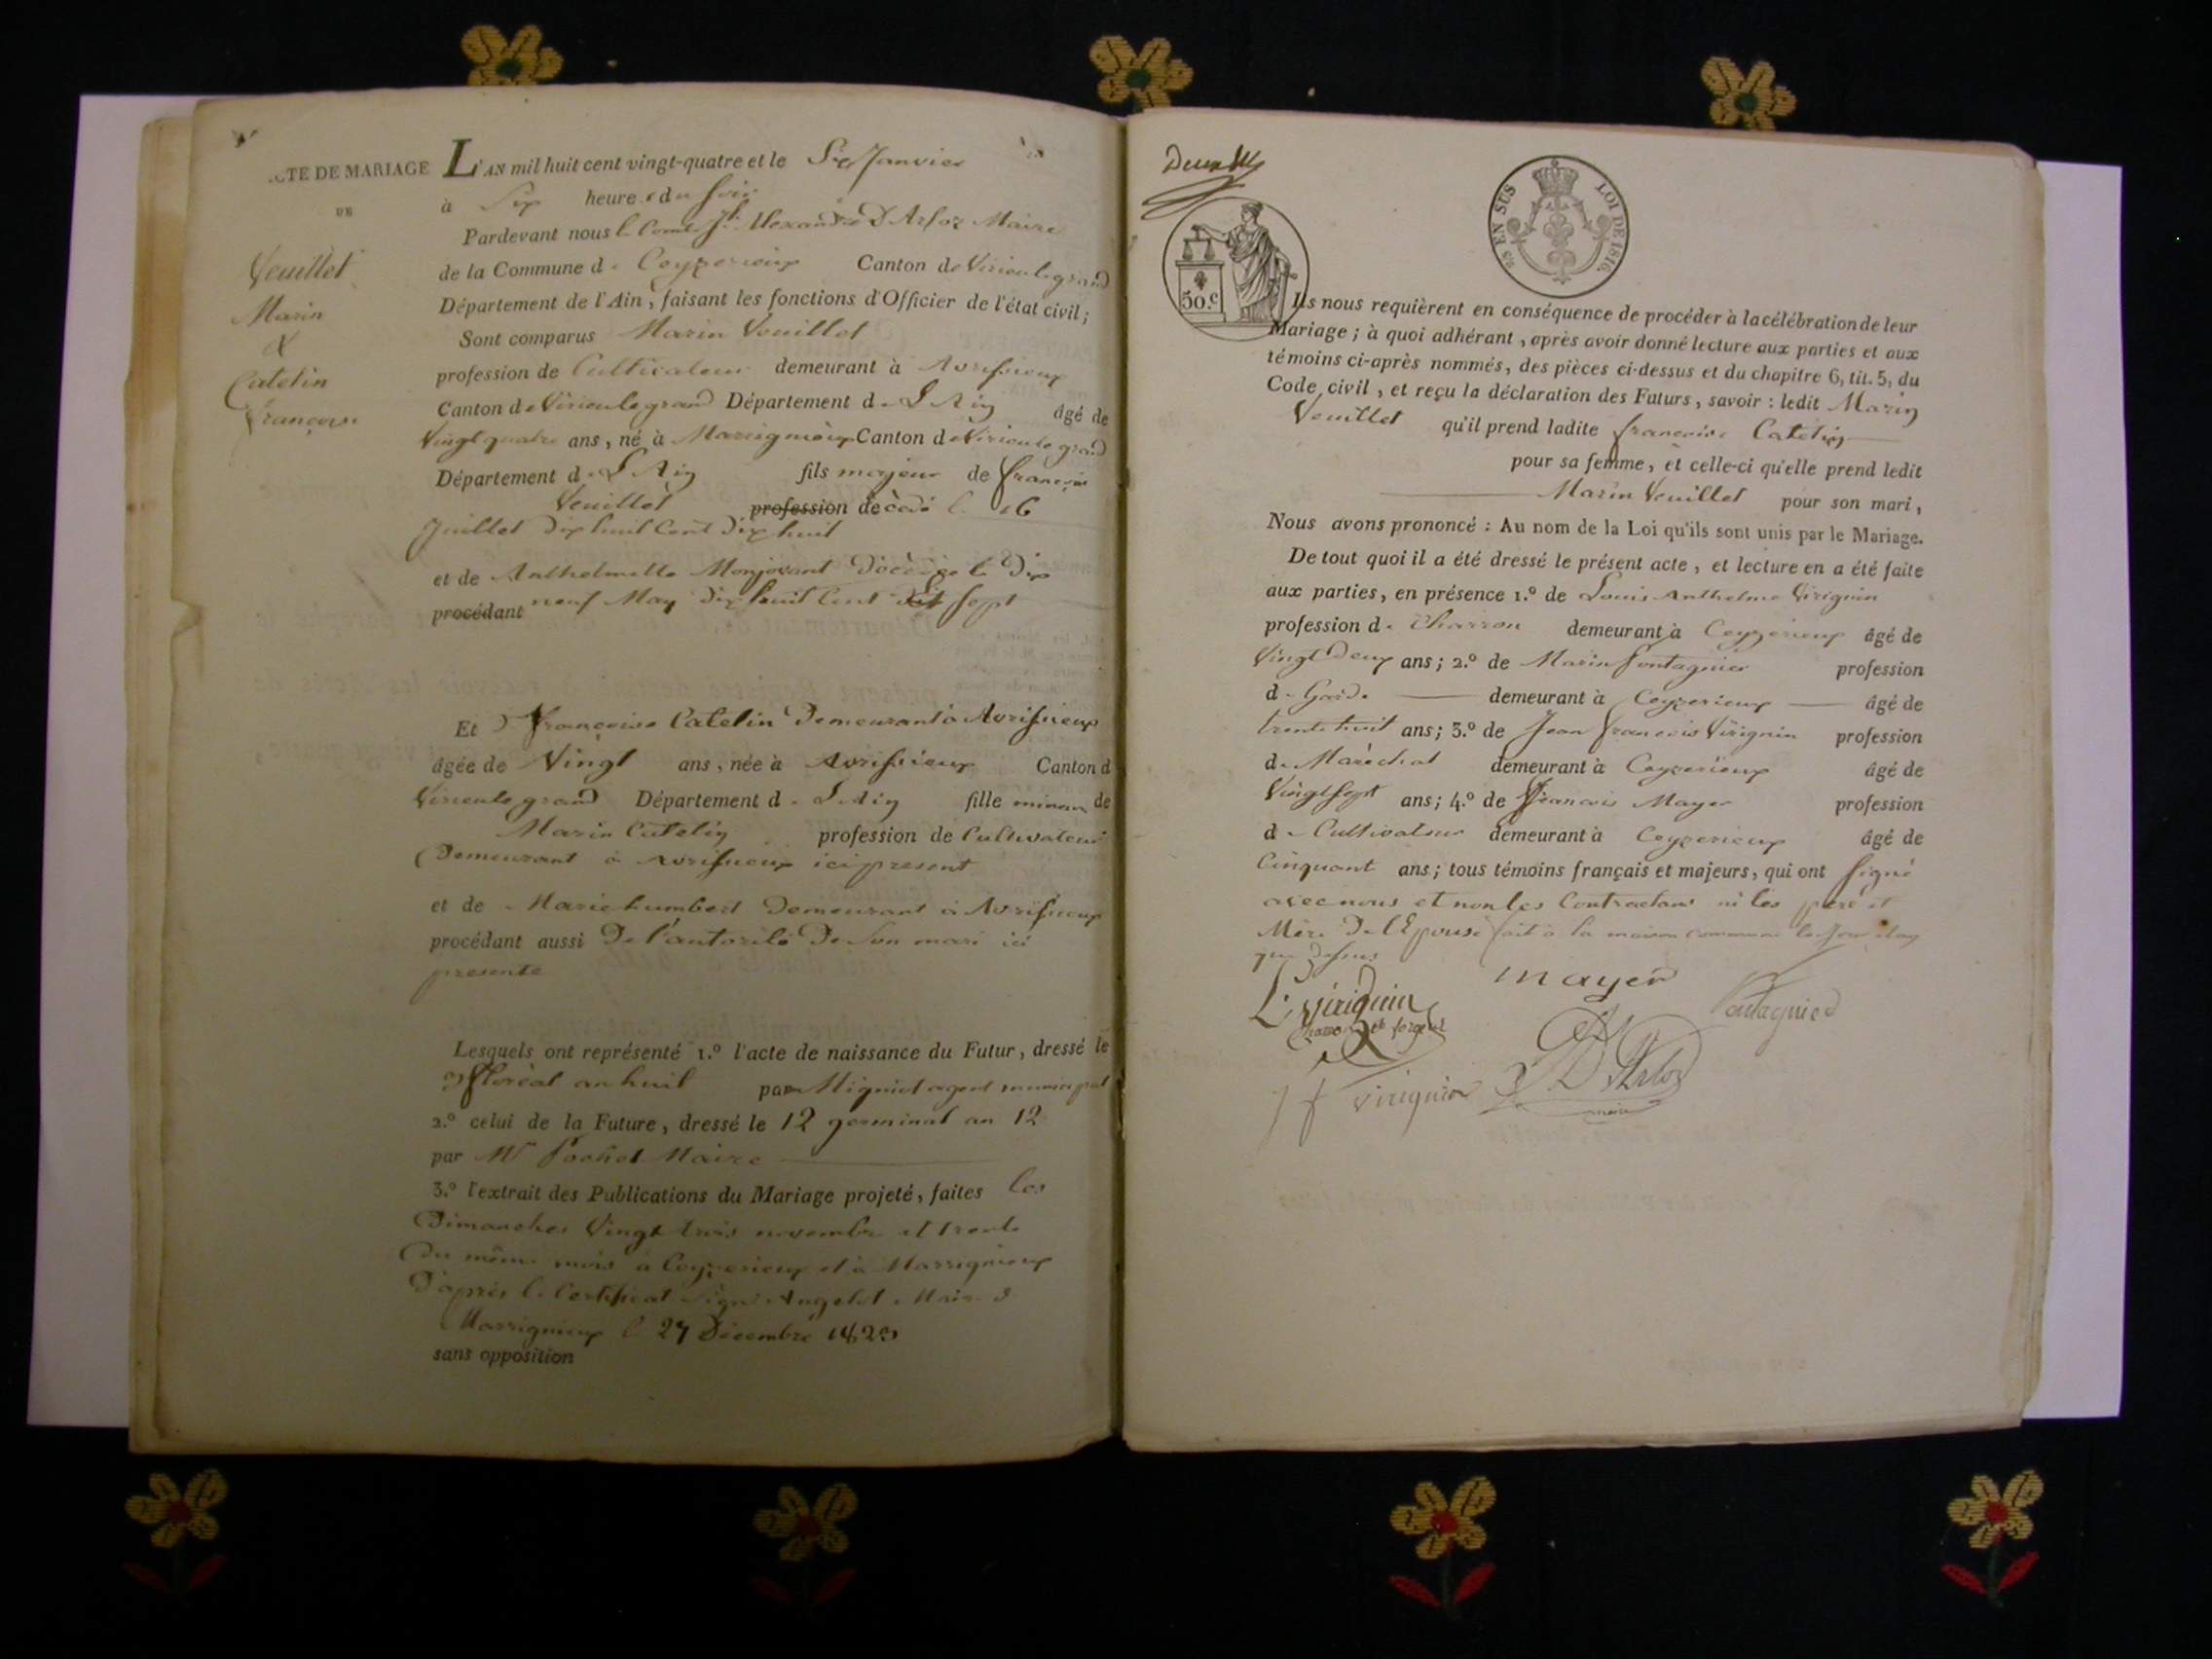 ACTE DE MARIAGE
DE
Veuillet
Marin
&
Catelin
françoise
L'AN mil huit cent vingt-quatre et le Six Janvier
à Six heures du soir
Pardevant nous le Comte Jh Alexandre D'Arloz Maire
de la Commune de Ceyzerieux Canton de Virieulegrand
Département de l'Ain, faisant les fonctions d'Officier de l'état civil;
Sont comparus Marin Veuillet
profession de Cultivateur demeurant à Avrissieux
Canton de Virieulegrand Département de L'Ain âgé de
Vingt quatre ans, né à Massignieux Canton de Virieulegrand
Département de L'Ain fils majeur de françois
Veuillet profession décédé le 16
Juillet dix huit Cent dix huit
et de Anthelmette Monjovant décédée le dix
procédant neuf May dix huit Cent dix sept
Et françoise Catelin demeurant à Avrissieux
âgée de Vingt ans, née à Avrissieux Canton d
Virieulegrand Département de L'Ain fille mineure de
Marin Catelin profession de Cultivateur
Demeurant à Avrissieux ici present
et de Marie humbert demeurant à Avrissieux
procédant aussi De l'autorité De Son mari ici
presente
Lesquels ont représenté 1.º l'acte de naissance du Futur, dressé le
floréal an huit par Migniot agent municipal
2.º celui de la Future, dressé le 12 germinal an 12
par Mr Pochet Maire
3.º l'extrait des Publications du Mariage projeté, faites les
Dimanches Vingt trois novembre et trente
Du même mois à Ceyzerieux et à Massignieux
D'après le Certificat signé Angelot Maire d
Massignieux le 27 Décembre 1823
sans opposition
Deux
50.c
EN SUS
LOI DE 1816.
Ils nous requièrent en conséquence de procéder à la célébration de leur
Mariage; à quoi adhérant, après avoir donné lecture aux parties et aux
témoins ci-après nommés, des pièces ci-dessus et du chapitre 6, tit. 5, du
Code civil, et reçu la déclaration des Futurs, savoir: ledit Marin
Veuillet qu'il prend ladite françoise Catelin
pour sa femme, et celle-ci qu'elle prend ledit
Marin Veuillet pour son mari,
Nous avons prononcé: Au nom de la Loi qu'ils sont unis par le Mariage.
De tout quoi il a été dressé le présent acte, et lecture en a été faite
aux parties, en présence 1.º de Louis Anthelme Virignin
profession de Charron demeurant à Ceyzerieux âgé de
Vingt Deux ans; 2.º de Marin fontagnier profession
de Garde demeurant à Ceyzerieux âgé de
trente huit ans; 3.º de Jean françois Virignin profession
de Maréchal demeurant à Ceyzerieux âgé de
Vingt Sept ans; 4.º de françois Mayer profession
de Cultivateur demeurant à Ceyzerieux âgé de
Cinquant ans; tous témoins français et majeurs, qui ont signé
avec nous et non les Contractans ni les père et
Mère De l'Epouse fait à la maison commune les Jour et an
que Dessus
L. Virignin
mayer
fontagnier
J f virignin
D'Arloz
maire